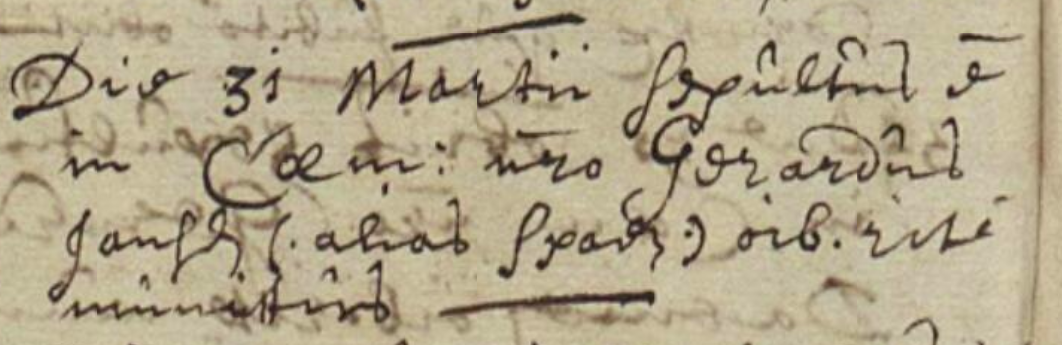 Die 31 Martii sepultus ē
in Cœm: nr̄o Gerardus
(. alias :) oib. rite
munitus